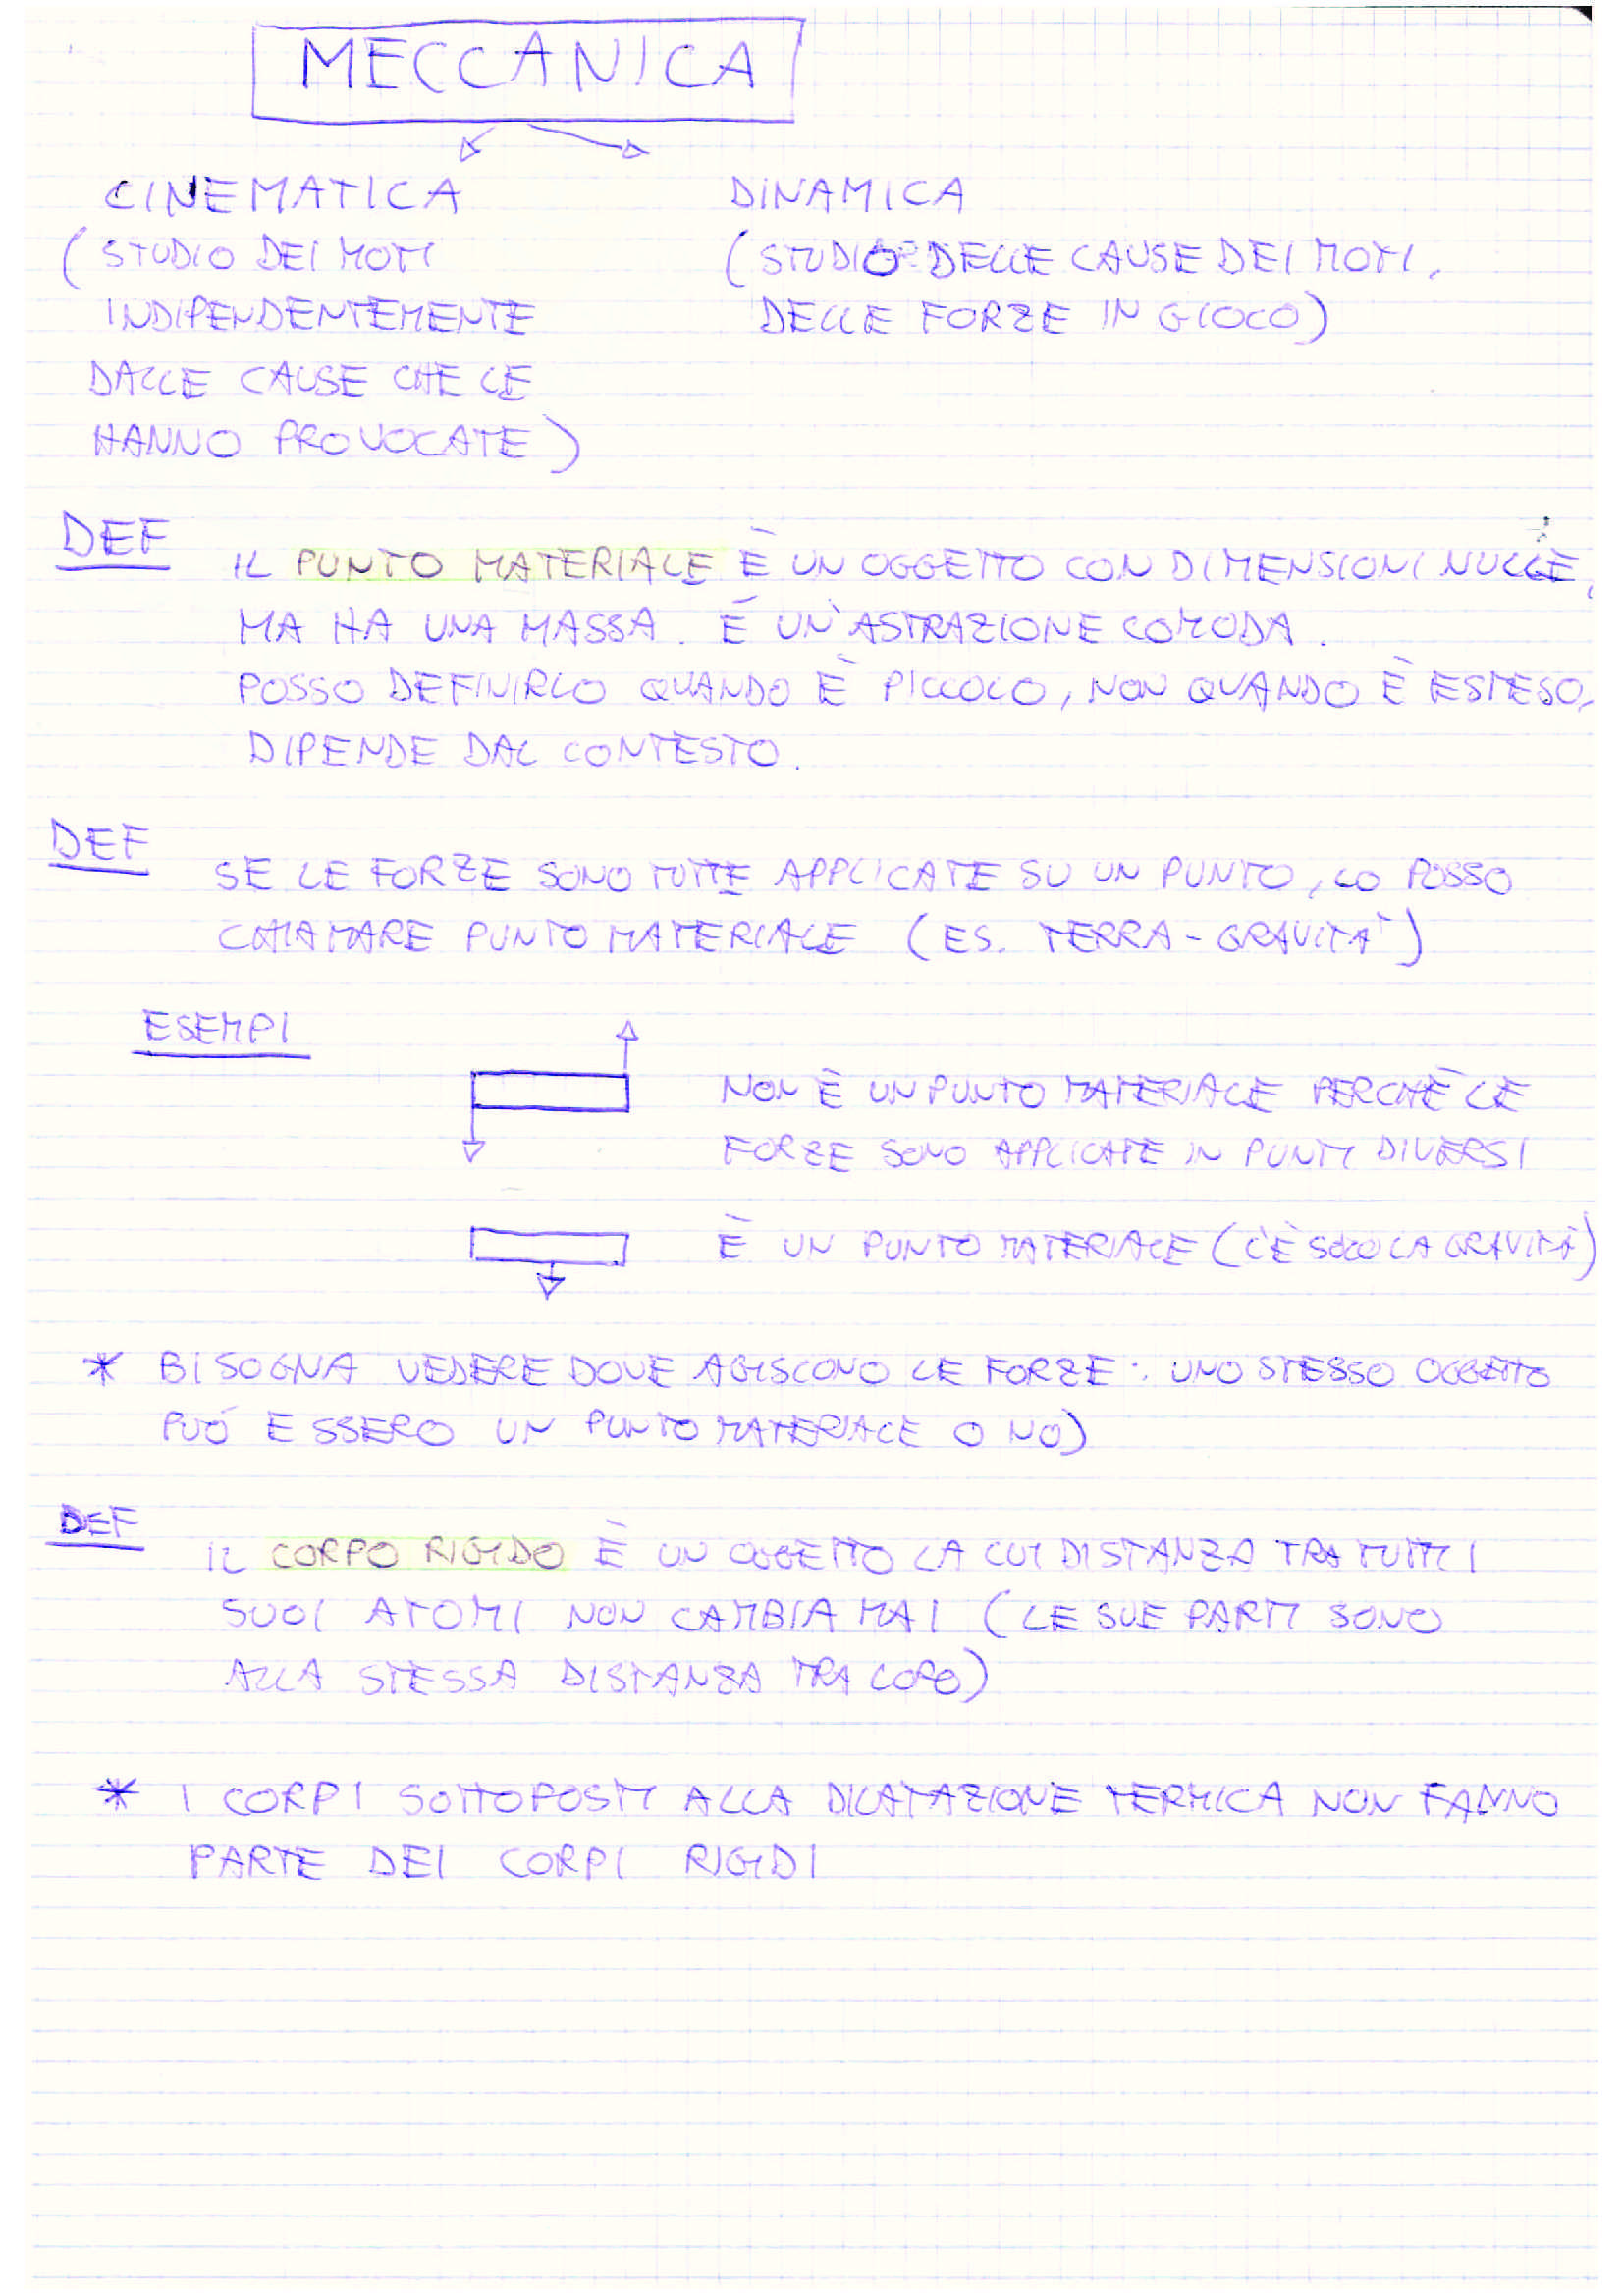 MECCANICA
CINEMATICA
(STUDIO DEI MOTI
INDIPENDENTEMENTE
DALLE CAUSE CHE LE
HANNO PROVOCATE)
DINAMICA
(STUDIO DELLE CAUSE DEI MOTI,
DELLE FORZE IN GIOCO)
DEF
IL PUNTO MATERIALE È UN OGGETTO CON DIMENSIONI NULLE,
MA HA UNA MASSA. È UN'ASTRAZIONE COMODA.
POSSO DEFINIRLO QUANDO È PICCOLO, NON QUANDO È ESTESO,
DIPENDE DAL CONTESTO.
DEF
SE LE FORZE SONO TUTTE APPLICATE SU UN PUNTO, LO POSSO
CHIAMARE PUNTO MATERIALE (ES. TERRA - GRAVITÀ)
ESEMPI
NON È UN PUNTO MATERIALE PERCHÈ LE
FORZE SONO APPLICATE IN PUNTI DIVERSI
È UN PUNTO MATERIALE (C'È SOLO LA GRAVITÀ)
* BISOGNA VEDERE DOVE AGISCONO LE FORZE: UNO STESSO OGGETTO
PUÓ ESSERO UN PUNTO MATERIALE O NO)
DEF
IL CORPO RIGIDO È UN OGGETTO LA CUI DISTANZA TRA TUTTI I
SUOI ATOMI NON CAMBIA MAI (LE SUE PARTI SONO
ALLA STESSA DISTANZA TRA LORO)
* I CORPI SOTTOPOSTI ALLA DILATAZIONE TERMICA NON FANNO
PARTE DEI CORPI RIGIDI